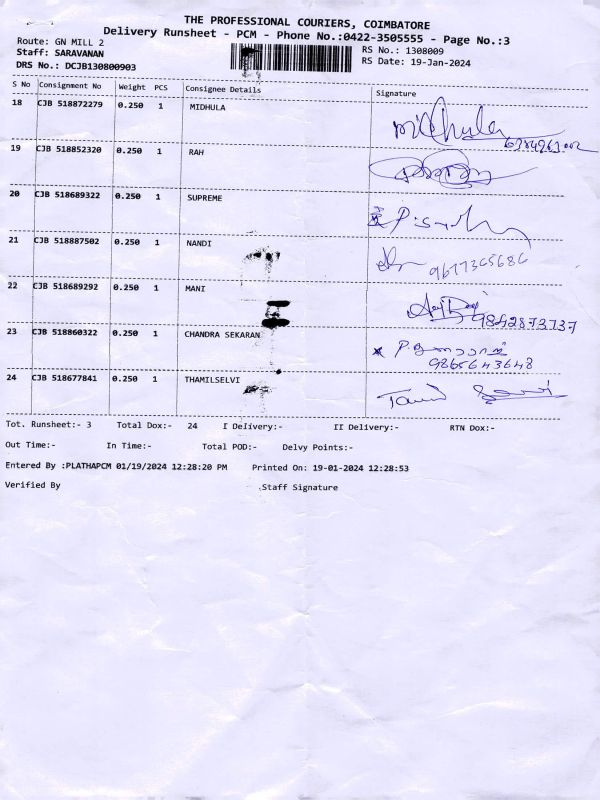 THE PROFESSIONAL COURIERS, COIMBATORE
Delivery Runsheet - PCM - Phone No.:0422-3505555 - Page No.:3
Route: GN MILL 2
RS No.: 1308009
Staff: SARAVANAN
RS Date: 19-Jan-2024
DRS No.: DCJB130800903
S No Consignment No Weight PCS Consignee Details Signature
18 CJB 518872279 0.250 1 MIDHULA Midhula
19 CJB 518852320 0.250 1 RAH
20 CJB 518689322 0.250 1 SUPREME
21 CJB 518887502 0.250 1 NANDI
9677365686
22 CJB 518689292 0.250 1 MANI
9842873737
23 CJB 518860322 0.250 1 CHANDRA SEKARAN
9865643648
24 CJB 518677841 0.250 1 THAMILSELVI
Tot. Runsheet:- 3 Total Dox:- 24 I Delivery:- II Delivery:- RTN Dox:-
Out Time:- In Time:- Total POD:- Delvy Points:-
Entered By :PLATHAPCM 01/19/2024 12:28:20 PM Printed On: 19-01-2024 12:28:53
Verified By .Staff Signature